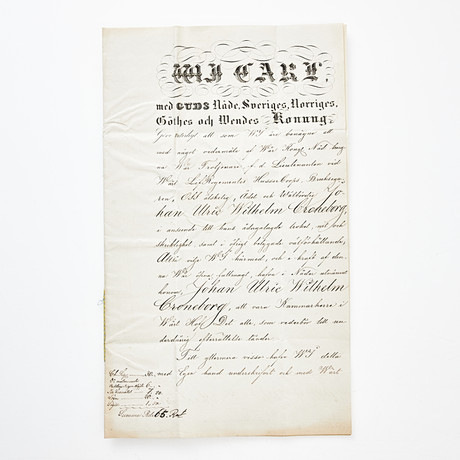 WJ CARL,
med GUDS Nåde, Sveriges, Norriges,
Göthes och Wendes Konung,
Göre veterligt att som WJ äre benägne att
med något vedermäle af Wår Kongl. Nåd hug-
na Wår Trotjenare f. d. Lieutenanten vid
Wårt Lif-Regementes Husar Corps,
Oss älskelig, Ädel och Wälbördig Jo-
han Ulric Wilhelm Croneborg,
i anseende till hans ådagalagda insikt, nit och
skicklighet, samt i öfrigt
Alltså vilje WJ härmed, och i kraft af den-
na Wår öppna fullmagt, hafva i Nåder utnämnt
honom, Johan Ulric Wilhelm
Croneborg, att vara Kammarherre i
Wårt Hof. Det alle, som vederbör till un-
derdånig efterrättelse lände.
Till yttermera visso hafve WJ detta
med Egen hand underskrifvit och med Wårt